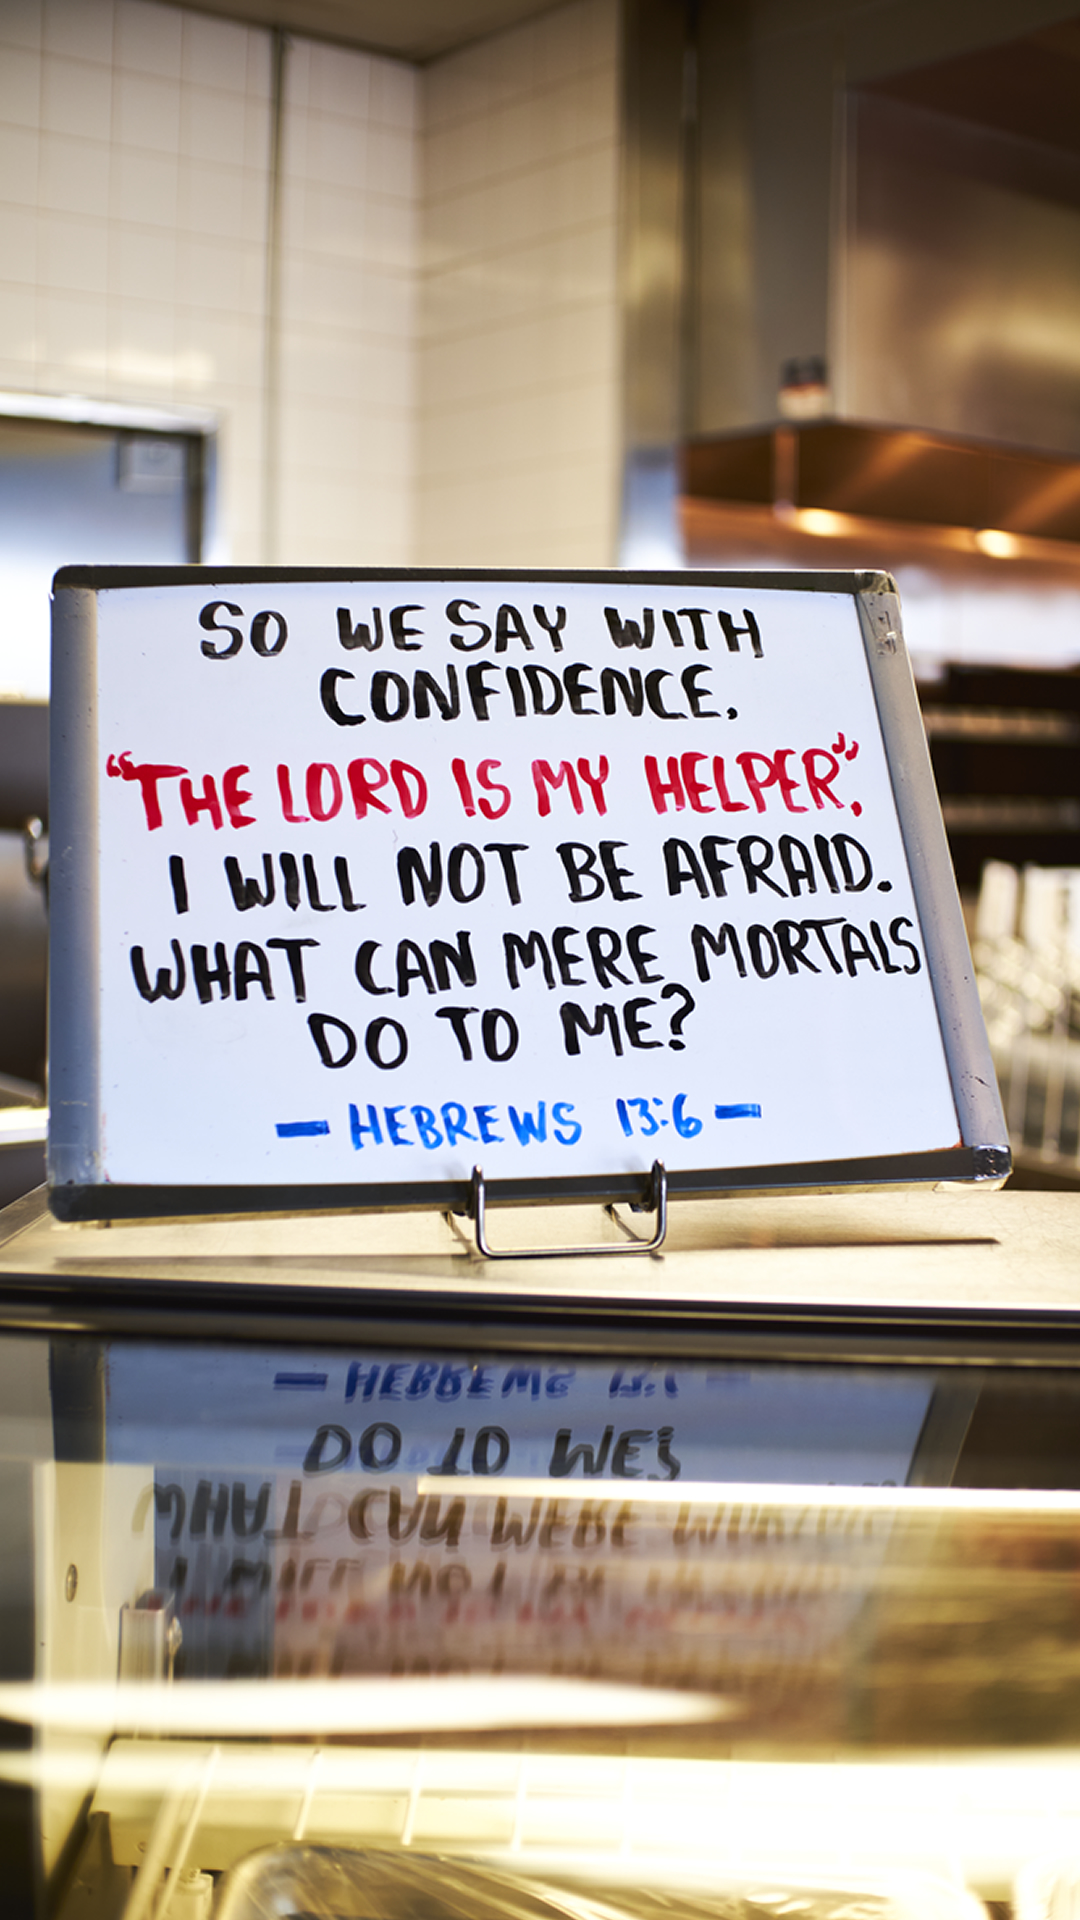 SO WE SAY WITH
CONFIDENCE,
"THE LORD IS MY HELPER",
I WILL NOT BE AFRAID.
WHAT CAN MERE MORTALS
DO TO ME?
— HEBREWS 13:6 —